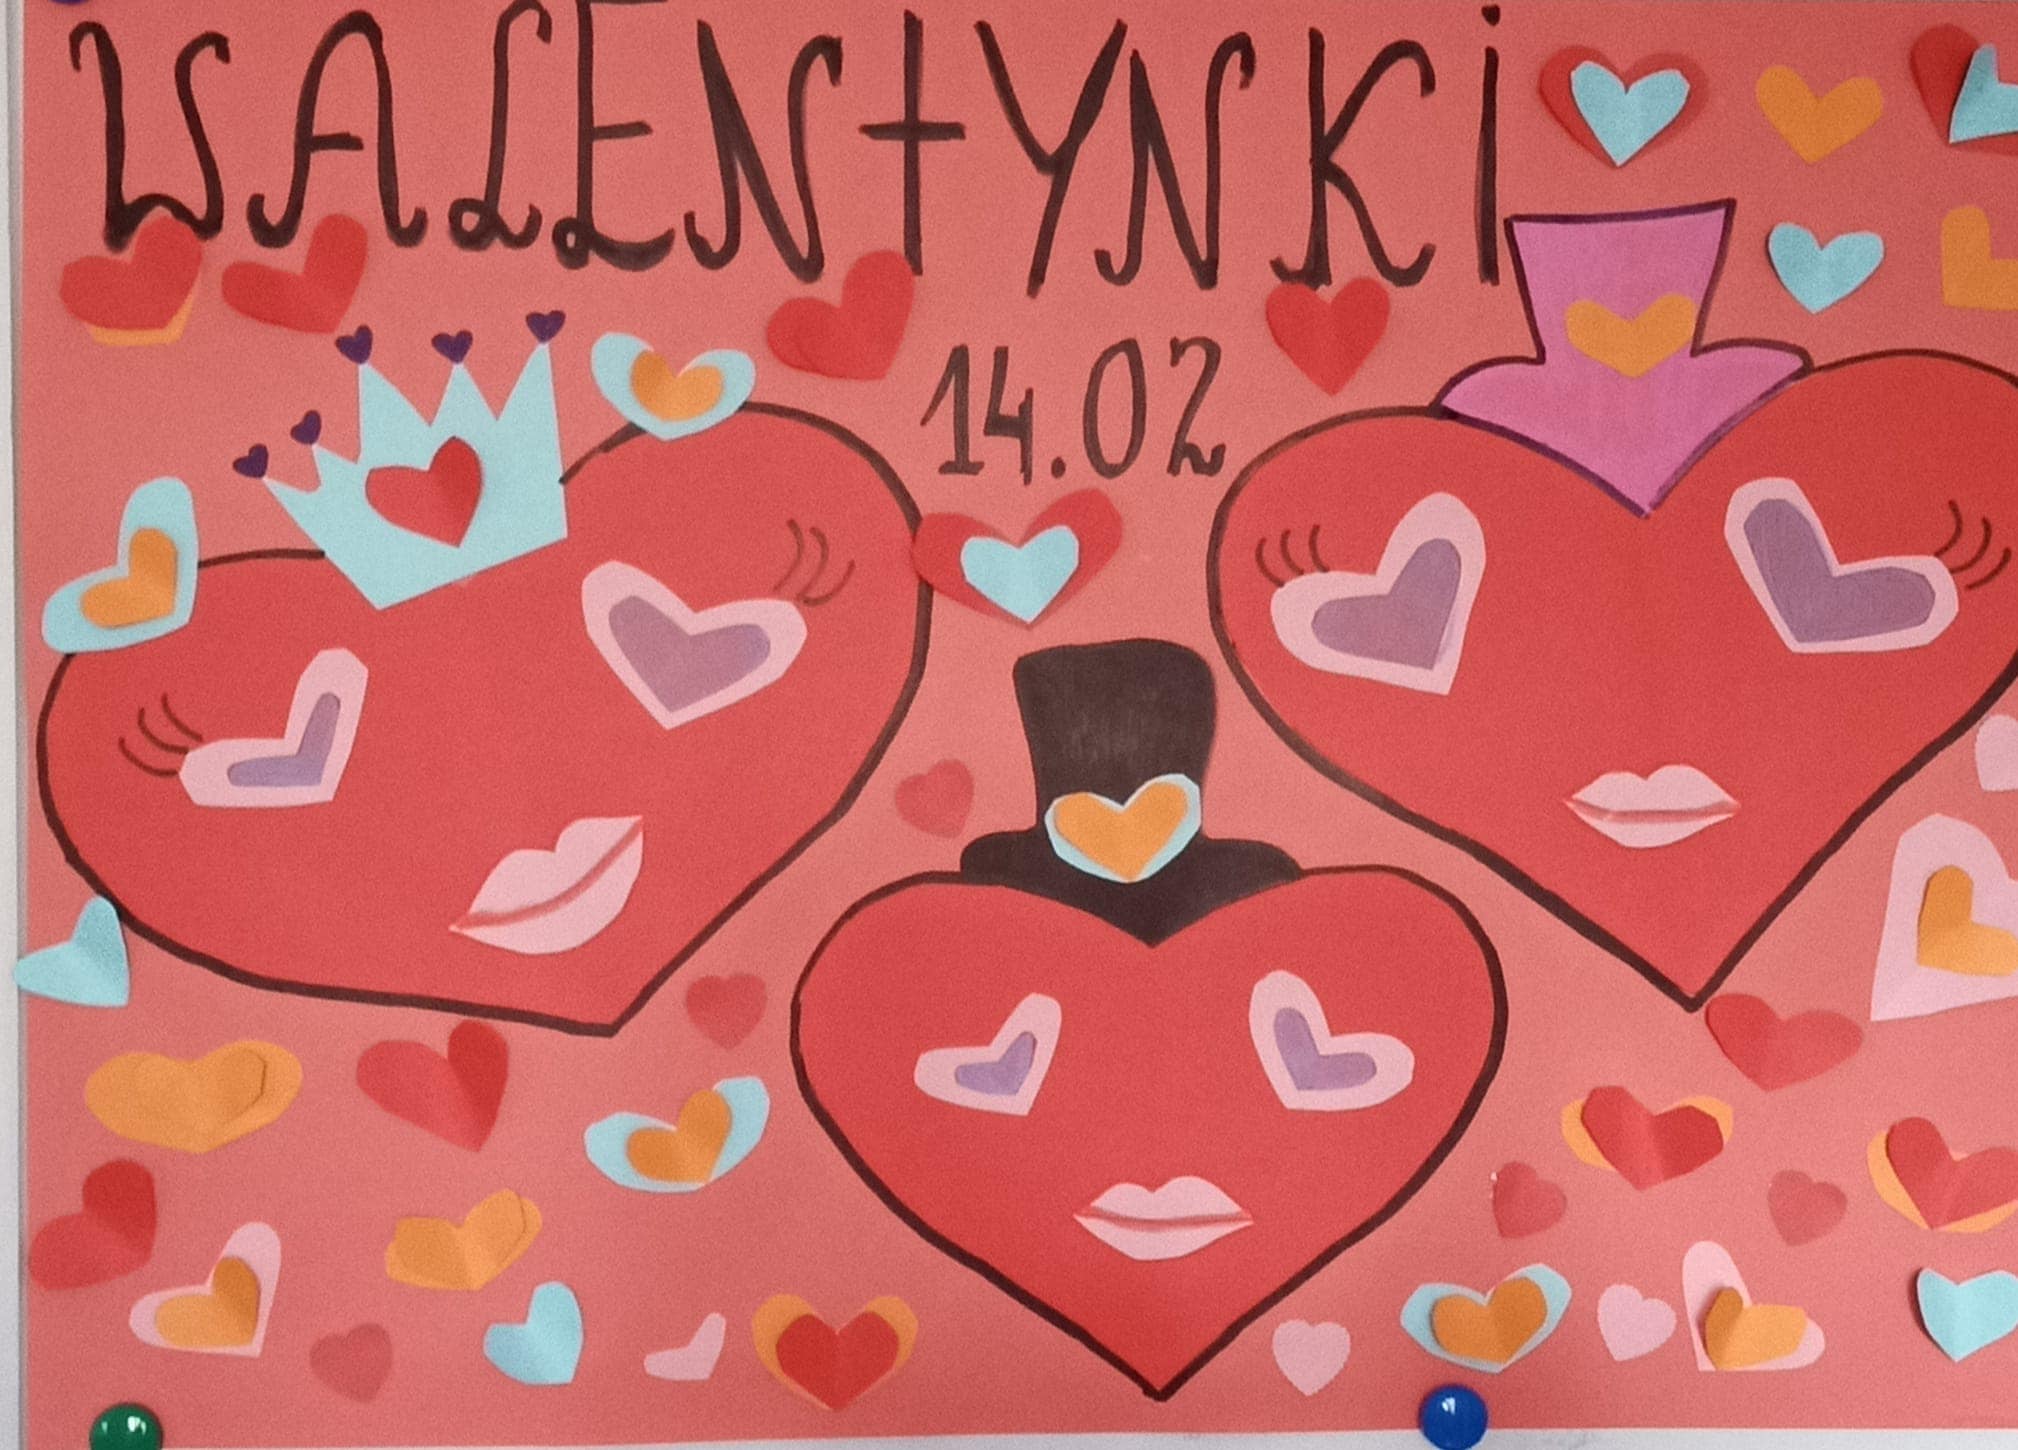 WALENTYNKi
14.02